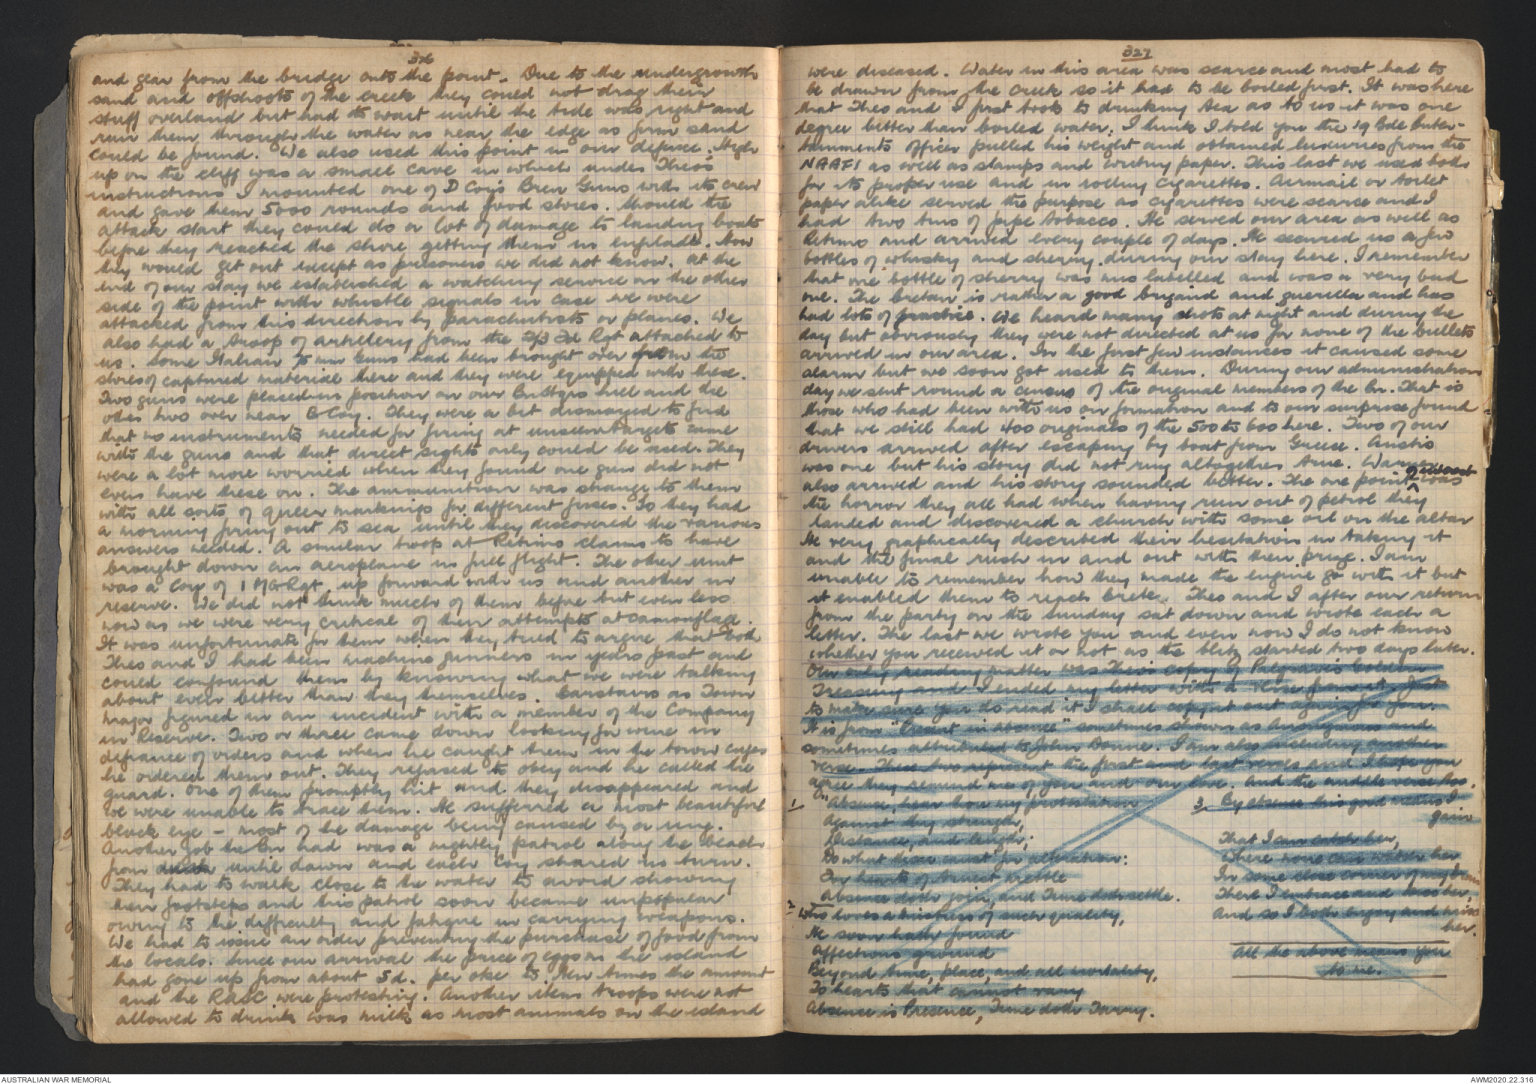 326
and gear from the bridge onto the point. Due to the undergrowth
sand and offshoots of the creek they could not drag their
stuff overland but had to wait until the tide was right and
run them through the water as near the edge as firm sand
could be found. We also used this point in our defence. High
up on the cliff was a small cave in which under Theo's
instructions I mounted one of D Coy's Bren Guns with its crew
and gave them 5000 rounds and food stores. Should the
attack start they could do a lot of damage to landing boats
before they reached the shore getting them in enfilade. How
they would get out except as prisoners we did not know. At the
end of our stay we established a watching service on the other
side of the point with whistle signals in case we were
attacked from this direction by parachutists or planes. We
also had a troop of artillery from the 2/3 Fd Rgt attached to
us. Some Italian 75 mm Guns had been brought over from the
stores of captured material there and they were equipped with these.
Two guns were placed in position on our Bn Hdqrs hill and the
other two over near B Coy. They were a bit dismayed to find
that no instruments needed for firing at unseen targets came
with the guns and that direct sights only could be used. They
were a lot more worried when they found one gun did not
even have these on. The ammunition was strange to them
with all sorts of queer markings for different fuses. So they had
a morning firing out to sea until they discovered the various
answers needed. A similar troop at Retimo claims to have
brought down an aeroplane in full flight. The other unit
was a Coy of 1 MG Rgt up forward with us and another in
reserve. We did not think much of them before but even less
now as we were very critical of their attempts at camouflage.
It was unfortunate for them when they tried to argue that both
Theo and I had been machine gunners in years past and
could confound them by knowing what we were talking
about even better than they themselves. Carstairs as Town
Major figured in an incident with a member of the Company
in Reserve. Two or three came down looking for wine in
defiance of orders and when he caught them in the town cafes
he ordered them out. They refused to obey and he called the
guard. One of them promptly hit and they disappeared and
we were unable to trace them. He suffered a most beautiful
black eye – most of the damage being caused by a ring.
Another job the Bn had was a nightly patrol along the beach
from dusk until dawn and each Coy shared its turn.
They had to walk close to the water to avoid showing
their footsteps and this patrol soon became unpopular
owing to the difficulty and fatigue in carrying weapons.
We had to issue an order preventing the purchase of food from
the locals. Since our arrival the price of eggs on the island
had gone up from about 5d. per oke to ten times the amount
and the RASC were protesting. Another item troops were not
allowed to drink was milk as most animals on the island
327
were diseased. Water in this area was scarce and most had to
be drawn from the creek so it had to be boiled first. It was here
that Theo and I first took to drinking tea as to us it was one
degree better than boiled water. I think I told you the 19 Bde Enter-
tainments officer pulled his weight and obtained luxuries from the
NAAFI as well as stamps and writing paper. This last we used both
for its proper use and in rolling cigarettes. Airmail or toilet
paper alike served the purpose as cigarettes were scarce and I
had two tins of pipe tobacco. He served our area as well as
Retimo and arrived every couple of days. He secured us a few
bottles of whisky and sherry during our stay here. I remember
that one bottle of sherry was mis labelled and was a very bad
one. The Cretan is rather a good brigand and guerilla and has
had lots of practice. We heard many shots at night and during the
day but obviously they were not directed at us for none of the bullets
arrived in our area. In the first few instances it caused some
alarm but we soon got used to them. During our administration
day we sent round a census of the original members of the Bn. That is
those who had been with us on formation and to our surprise found
that we still had 400 originals of the 500 to 600 here. Two of our
drivers arrived after escaping by boat from Greece. Austis
was one but his story did not ring altogether true. Warner
also arrived and his story sounded better. The one point of interest was
the horror they all had when having run out of petrol they
landed and discovered a church with some oil on the altar
He very graphically described their hesitation in taking it
and the final rush in and out with their prize. I am
unable to remember how they made the engine go with it but
it enabled them to reach Crete. Theo and I after our return
from the party on the Sunday sat down and wrote each a
letter. The last we wrote you and even now I do not know
whether you received it or not as the blitz started two days later.
Our only reading matter was Theo's copy of Palgrave's Golden
Treasury and I ended my letter with a verse from it. Just
to make sure you do read it I shall copy it out again for you.
It is from "Present in absence" sometimes shown as Anonymous and
sometimes attributed to John Donne. I am also including another
verse. These two represent the first and last verses and I hope you
agree they remind me of you and our love. and the middle verse too.
1 "Absence, hear thou my protestation
Against thy strength,
Distance, and length;
Do what thou canst for alteration:
For hearts of truest mettle
Absence doth join, and Time doth settle.
2 Who loves a mistress of such quality,
He soon hath found
Affections ground
Beyond time, place, and all mortality.
To hearts that cannot vary
Absence is Presence, Time doth Tarry.
3 By absence this good means I
gain
That I can catch her,
Where none can watch her
In some close corner of my brain
There I embrace and kiss her,
And so I both enjoy and miss
her.
All the above means you
to me.
AUSTRALIAN WAR MEMORIAL
AWM2020.22.316